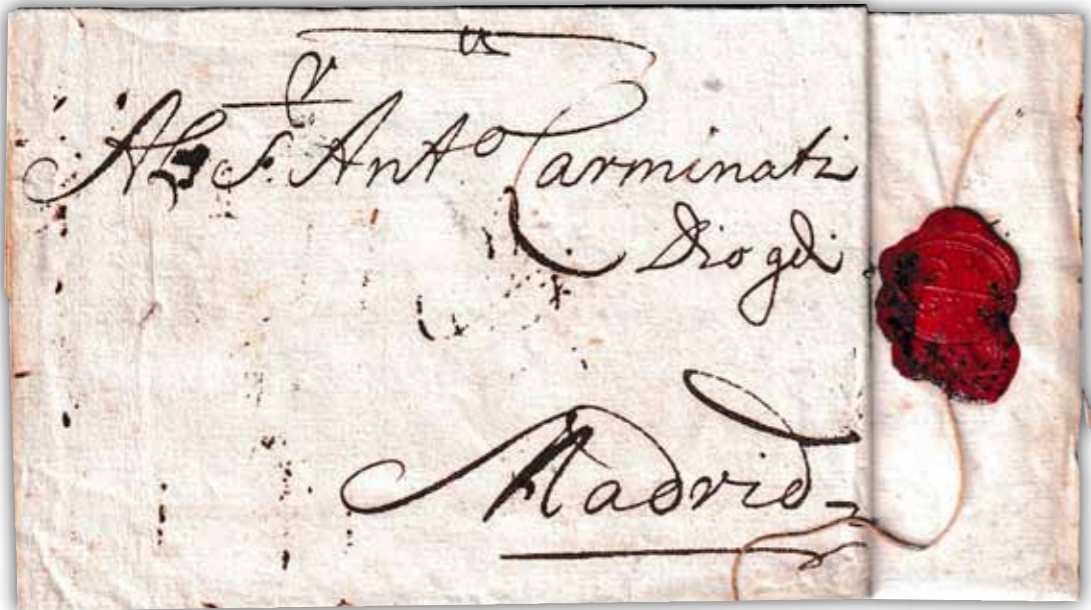 Al S.ʳ Antº Carminati
Dio gdi
Madrid